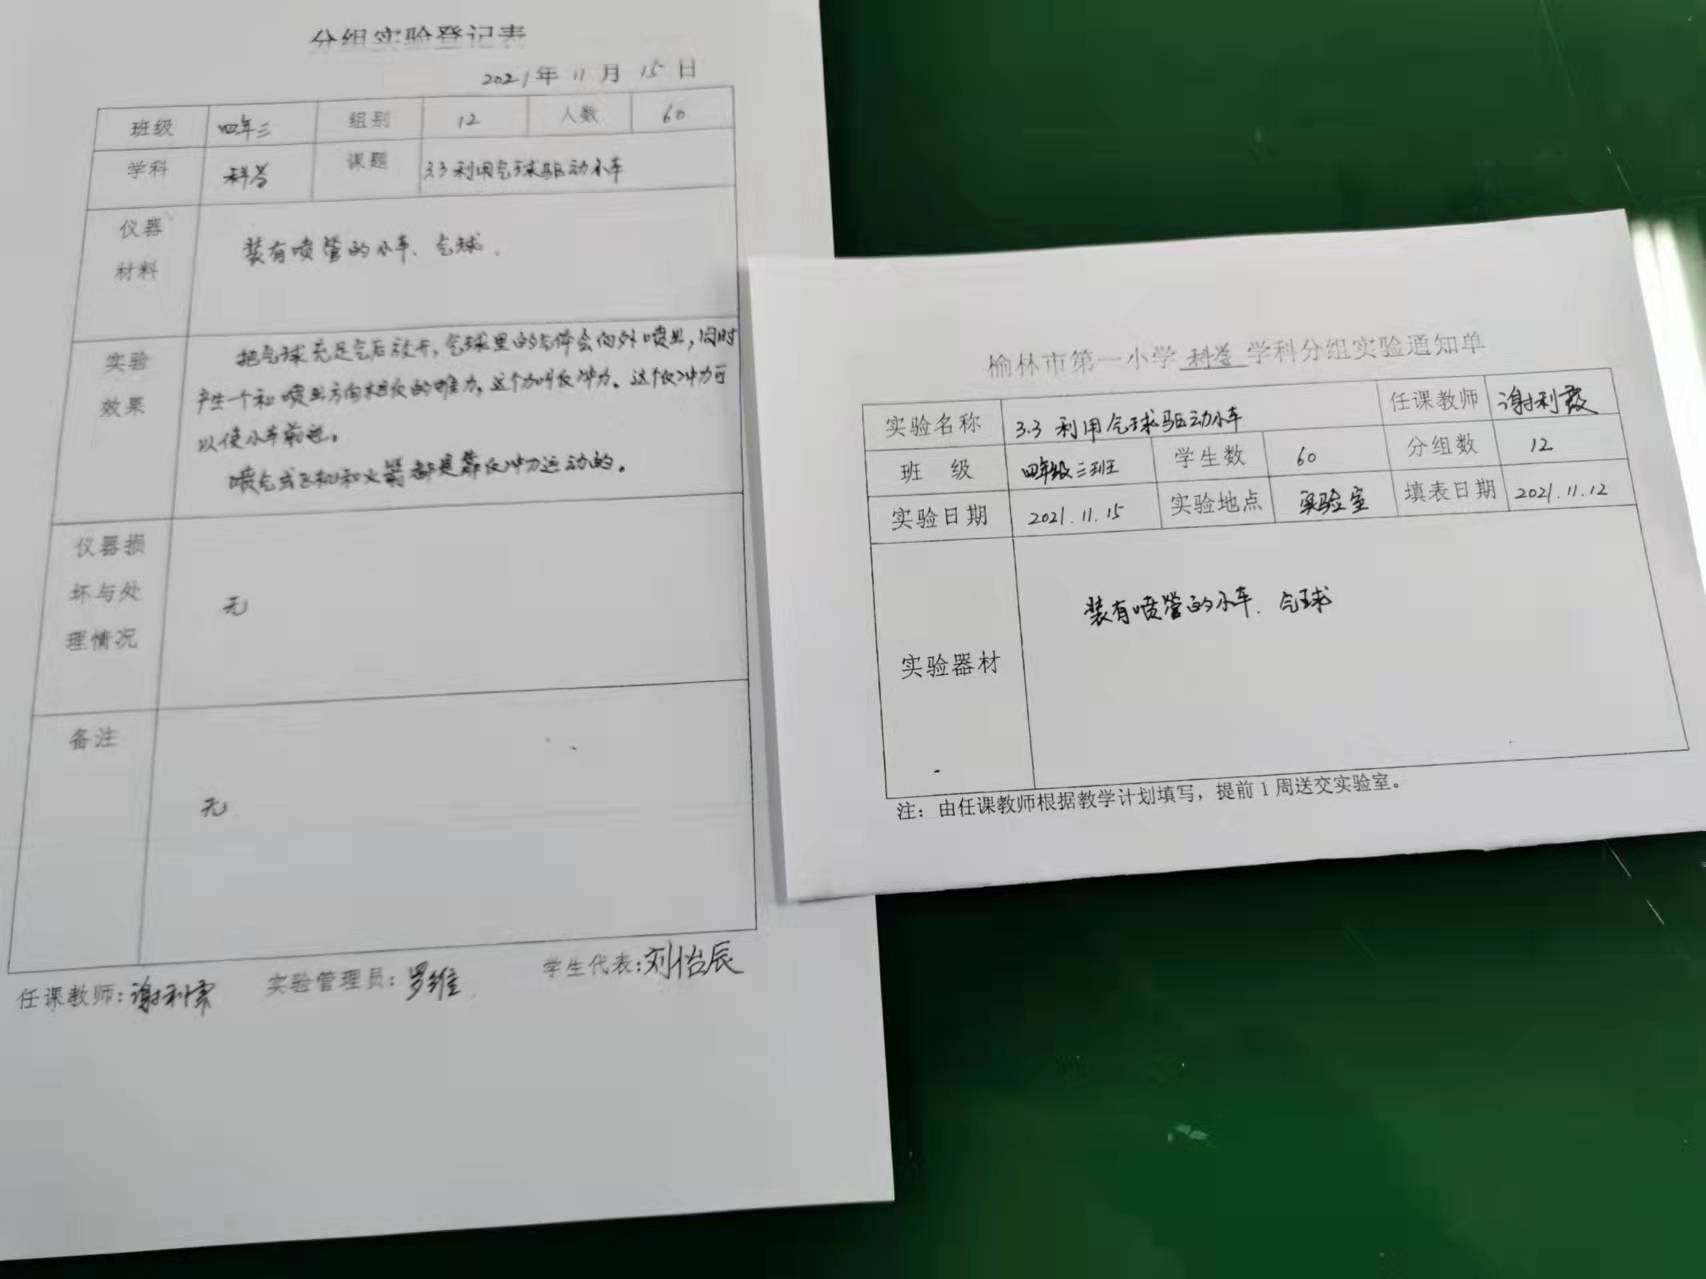 分组实验登记表
2021年 11 月 15 日
班级 四年三 组别 12 人数 60
学科 科学 课题 3.3 利用气球驱动小车
仪器
材料
装有喷管的小车、气球.
实验
效果
把气球充足气后放开,气球里的气体会向外喷出,同时
产生一个和喷出方向相反的推力,这个力叫反冲力。这个反冲力可
以使小车前进。
喷气式飞机和火箭都是靠反冲力运动的。
仪器损
坏与处
理情况
无
备注
无
任课教师:谢利霞 实验管理员:罗维 学生代表:刘怡辰
榆林市第一小学 科学 学科分组实验通知单
实验名称 3.3 利用气球驱动小车 任课教师 谢利霞
班 级 四年级三班 学生数 60 分组数 12
实验日期 2021.11.15 实验地点 实验室 填表日期 2021.11.12
实验器材 装有喷管的小车、气球
注：由任课教师根据教学计划填写，提前1周送交实验室。